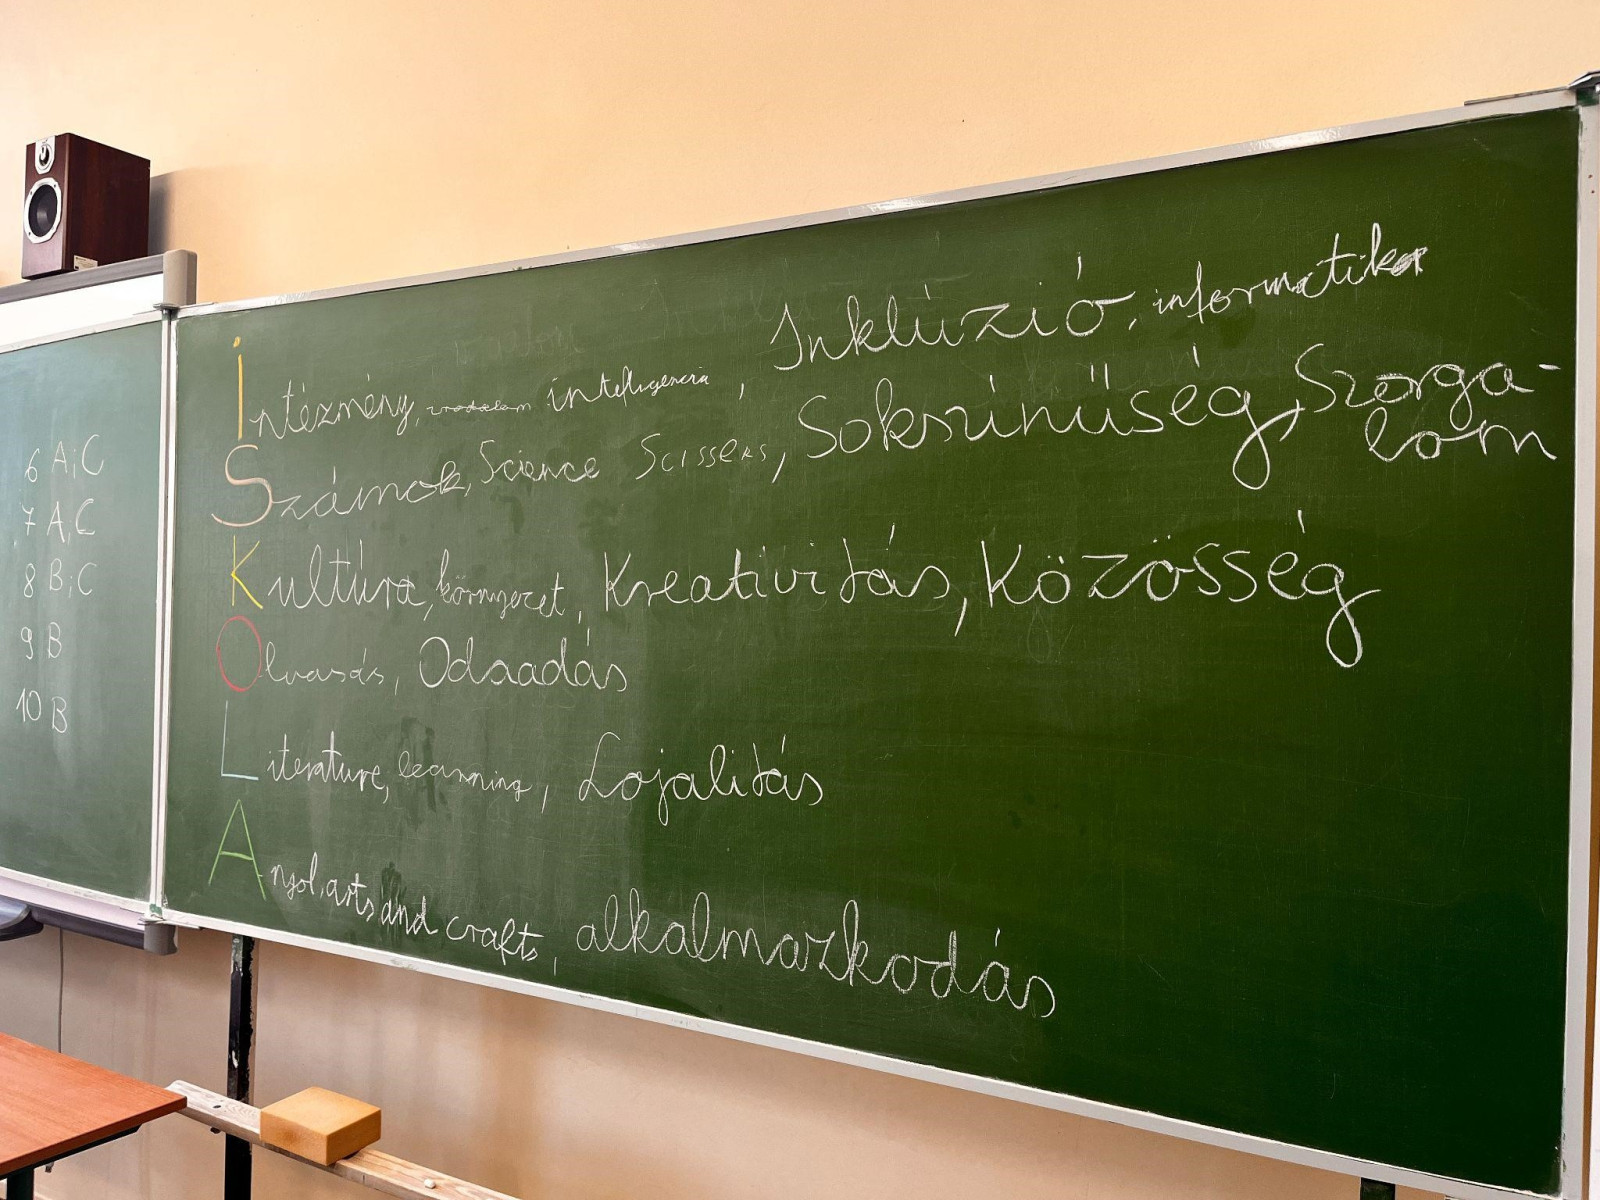 6 A,C
7 A,C
8 B,C
9 B
10 B
Intézmény, irodalom intelligencia, Inklúzió, informatika
Számok, Science Scissers, Sokszínűség, Szorga-
lom
Kultúra, környezet, Kreativitás, Közösség
Olvasás, Odaadás
Literature, learning, Lojalitás
Angol, arts and crafts, alkalmazkodás